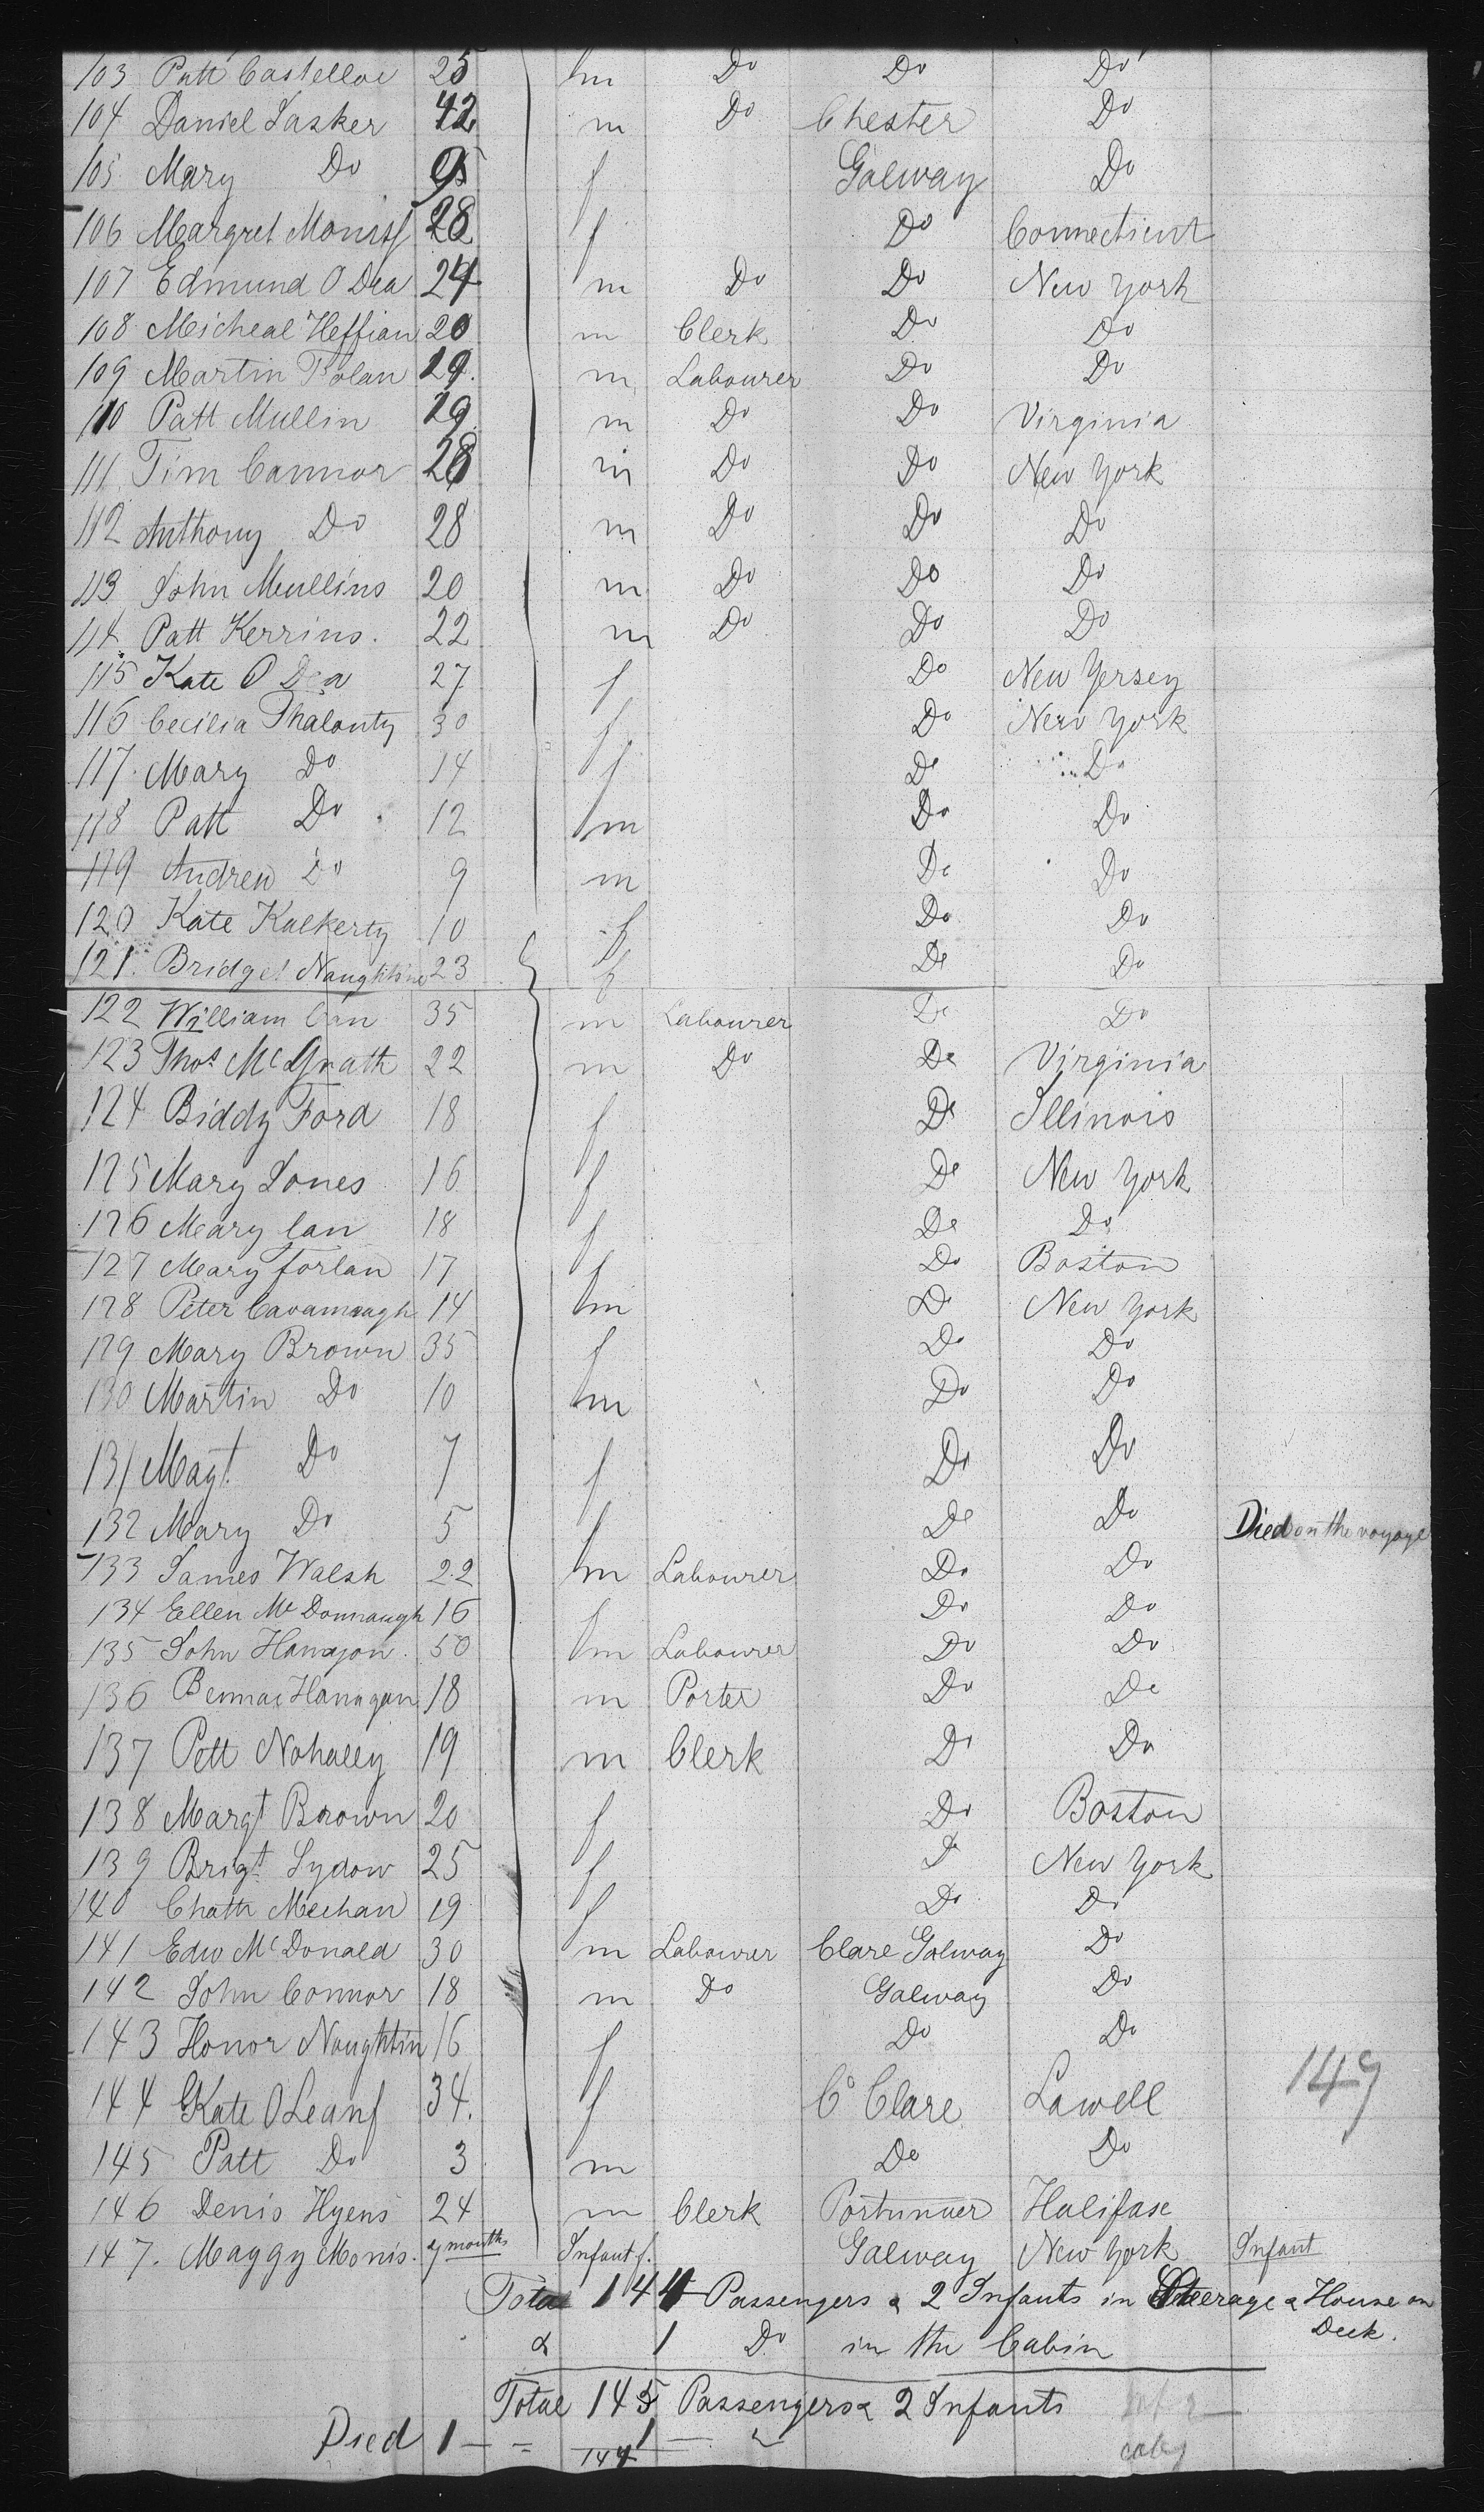 103 Patt Castelloe 25 m Do Do Do
104 Daniel Lasker 42 m Do Chester Do
105 Mary Do f Galway Do
106 Margret 28 f Do Connecticut
107 Edmund O Dea 24 m Do Do New York
108 Micheal Heffian 20 m Clerk Do Do
109 Martin Folan 29 m Labourer Do Do
110 Patt Mullin 29 m Do Do Virginia
111 Tim Connor 28 m Do Do New York
112 Anthony Do 28 m Do Do Do
113 John Mullins 20 m Do Do Do
114 Patt Kerrins. 22 m Do Do Do
115 Kate O Dea 27 f Do New Yersey
116 Cecilia Thalonty 30 f Do New York
117. Mary Do 14 f Do Do
118 Patt Do 12 m Do Do
119 Andrew Do 9 m Do Do
120 Kate Kalkerty 10 f Do Do
121. Bridget 23 f Do Do
122 William Can 35 m Labourer Do Do
123 Thos Mc Grath 22 m Do Do Virginia
124 Biddy Ford 18 f Do Illinois
125 Mary Jones 16 f Do New York
126 Mary Can 18 f Do Do
127 Mary forlan 17 f Do Boston
128 Peter Cavamaugh 14 m Do New York
129 Mary Brown 35 f Do Do
130 Martin Do 10 m Do Do
131 Magt Do 7 f Do Do
132 Mary Do 5 f Do Do Died on the voyage
133 James Walsh 22 m Labourer Do Do
134 Ellen Mc Donnaugh 16 f Do Do
135 John 50 m Labourer Do Do
136 Hanagan 18 m Porter Do Do
137 Pett Nohaley 19 m Clerk Do Do
138 Margt Brown 20 f Do Boston
139 Brigt Lydow 25 f Do New York
140 Chatn Meehan 19 f Do Do
141 Edw Mc Donald 30 m Labourer Clare Galway Do
142 John Connor 18 m Do Galway Do
143 Honor Noughtin 16 f Do Do
144 Kate O Leary 34. f Co Clare Lawell 149
145 Patt Do 3 m Do Do
146 Denis Hyens 24 m Clerk Portumner Halifax
147. Maggy Monis. months Infant f. Galway New York Infant
Total 144 Passengers & 2 Infants in Steerage & House on
Deck.
& 1 Do in the Cabin
Total 145 Passengers & 2 Infants
Died 1 - = 1
144